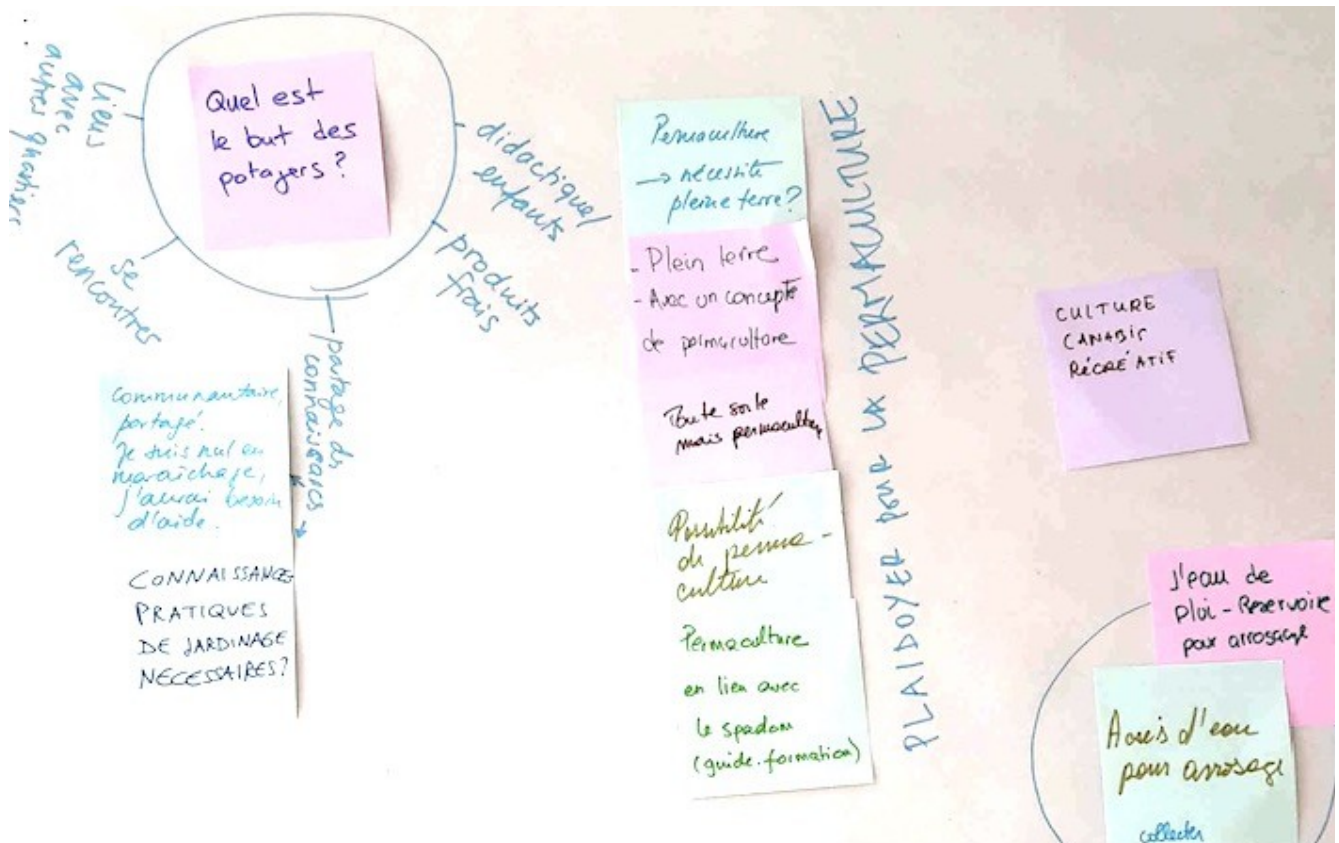 Quel est
le but des
potagers ?
liens
avec
autres quartiers
se
rencontres
didactique/
enfants
produits
frais
partage ds
connaissances
Communautaire,
partagé.
Je suis nul en
maraîchage,
j'aurai besoin
d'aide.
CONNAISSANCES
PRATIQUES
DE JARDINAGE
NECESSAIRES?
Permaculture
→ nécessite
pleine terre?
- Plein terre
- Avec un concept
de permaculture
Toute sorte
mais permaculture
Possibilité
de perma-
culture
Permaculture
en lien avec
le spadom
(guide.formation)
PLAIDOYER POUR LA PERMACULTURE
CULTURE
CANABIS
RÉCRÉATIF
J'eau de
Plui - Reservoire
pour arrosage
Accès d'eau
pour arrosage
collecter